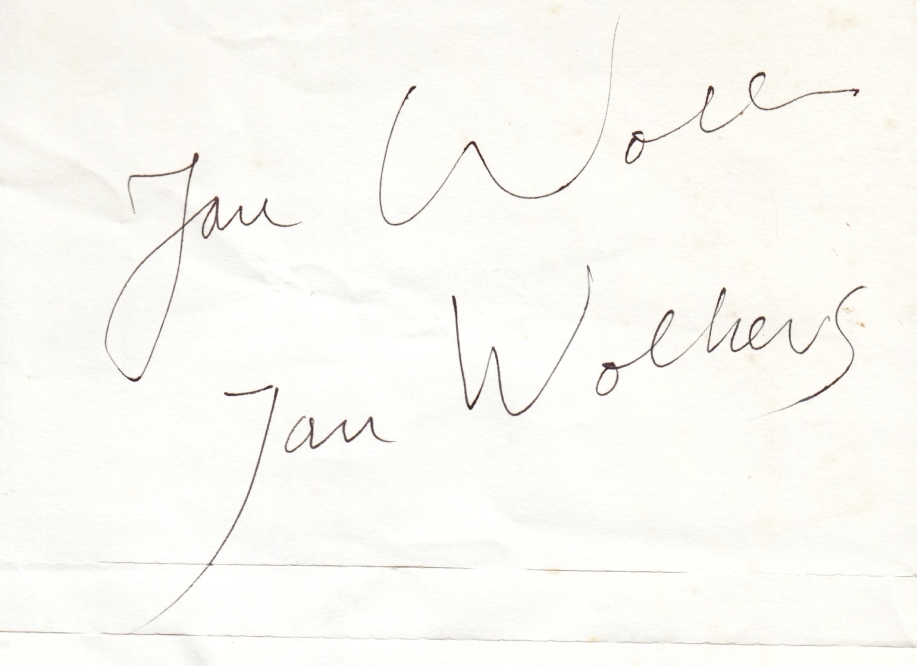 Jan Wolk
Jan Wolkers